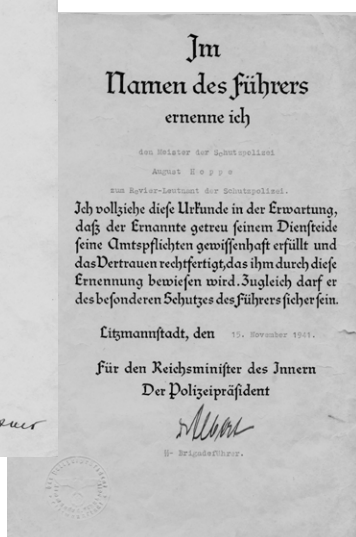 Im
Namen des Führers
ernenne ich
den Meister der Schutzpolizei
August H o p p e
zum Revier-Leutnant der Schutzpolizei.
Ich vollziehe diese Urkunde in der Erwartung,
daß der Ernannte getreu seinem Diensteide
seine Amtspflichten gewissenhaft erfüllt und
das Vertrauen rechtfertigt, das ihm durch diese
Ernennung bewiesen wird. Zugleich darf er
des besonderen Schutzes des Führers sicher sein.
Litzmannstadt, den 15. November 1941.
Für den Reichsminister des Innern
Der Polizeipräsident
Dr Albert
SS- Brigadeführer.